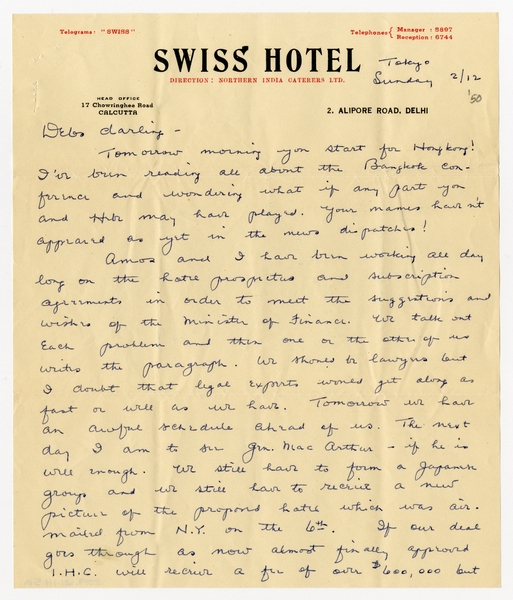 Telegrams: "SWISS"
Telephones { Manager : 5897
Reception : 6744
SWISS HOTEL
DIRECTION: NORTHERN INDIA CATERERS LTD.
Tokyo
Sunday 2/12
'50
HEAD OFFICE
17 Chowringhee Road
CALCUTTA
2, ALIPORE ROAD, DELHI
Debs darling -
Tomorrow morning you start for Hongkong!
I've been reading all about the Bangkok con-
ference and wondering what if any part you
and Hebe may have played. Your names haven't
appeared as yet in the news dispatches!
Amos and I have been working all day
long on the hotel prospectus and subscription
agreements in order to meet the suggestions and
wishes of the Minister of Finance. We talk out
each problem and then one or the other of us
writes the paragraph. We should be lawyers but
I doubt that legal experts would get along as
fast or well as we have. Tomorrow we have
an awful schedule ahead of us. The next
day I am to see Gen. Mac Arthur - if he is
well enough. We still have to form a Japanese
group and we still have to receive a new
picture of the proposed hotel which was air-
mailed from N.Y. on the 6th. If our deal
goes through as now almost finally approved
I.H.C. will receive a fee of over $600,000 but